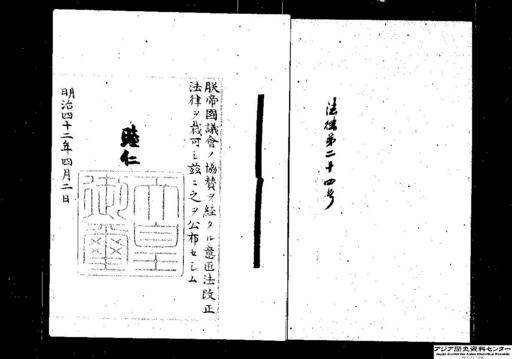 法律第二十四号
朕帝國議會ノ協賛ヲ経タル意匠法改正
法律ヲ裁可シ茲ニ之ヲ公布セシム
睦仁
天皇
御璽
明治四十二年四月二日
アジア歴史資料センター
Japan Center for Asian Historical Records